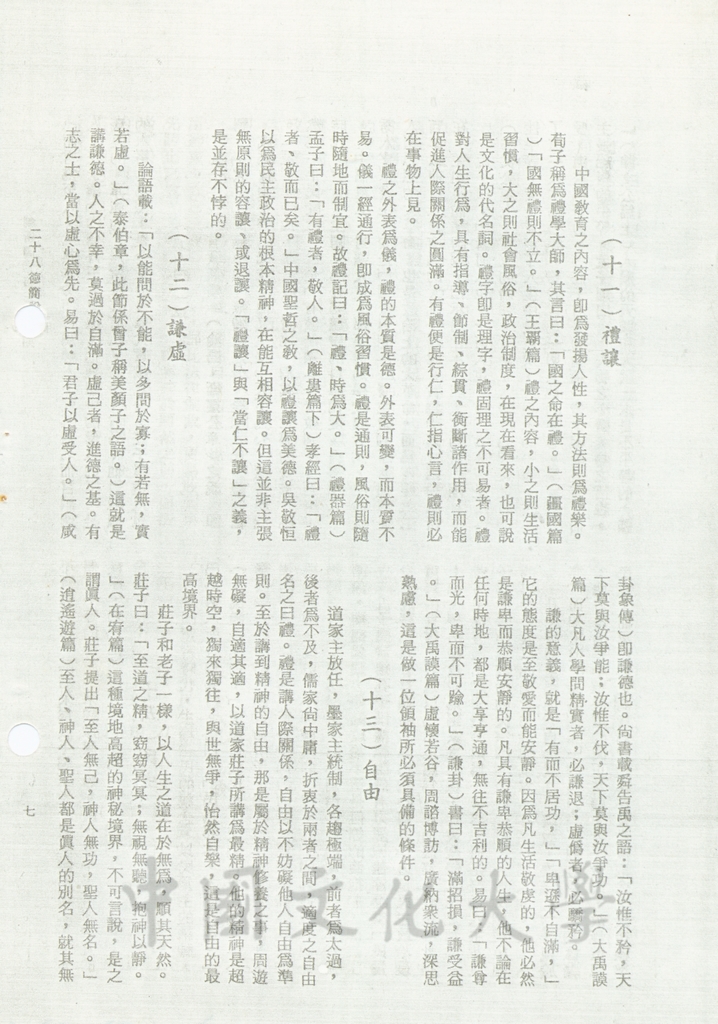 (十一)禮讓
中國敎育之內容，卽爲發揚人性，其方法則爲禮樂。
荀子稱爲禮學大師，其言曰：「國之命在禮。」（彊國篇
）「國無禮則不立。」（王霸篇）禮之內容，小之則生活
習慣，大之則社會風俗，政治制度，在現在看來，也可說
是文化的代名詞。禮字卽是理字，禮固理之不可易者。禮
對人生行爲，具有指導、節制、綜貫、衡斷諸作用，而能
促進人際關係之圓滿。有禮便是行仁，仁指心言，禮則必
在事物上見。
禮之外表爲儀，禮的本質是德。外表可變，而本質不
易。儀一經通行，卽成爲風俗習慣。禮是通則，風俗則隨
時隨地而制宜。故禮記曰：「禮、時爲大。」（禮器篇）
孟子曰：「有禮者，敬人。」（離婁篇下）孝經曰：「禮
者、敬而已矣。」中國聖哲之敎，以禮讓爲美德。吳敬恒
以爲民主政治的根本精神，在能互相容讓。但這並非主張
無原則的容讓、或退讓。「禮讓」與「當仁不讓」之義，
是並存不悖的。
(十二)謙虛
論語載：「以能問於不能，以多問於寡；有若無，實
若虛。」（泰伯章，此節係曾子稱美顏子之語。）這就是
講謙德。人之不幸，莫過於自滿。虛己者，進德之基。有
志之士，當以虛心爲先。易曰：「君子以虛受人。」（咸
二十八德簡
卦象傳）卽謙德也。尙書載舜告禹之語：「汝惟不矜，天
下莫與汝爭能；汝惟不伐，天下莫與汝爭功。」（大禹謨
篇）大凡人學問精實者，必謙退；虛僞者，必驕矜。
謙的意義，就是「有而不居功，」「卑遜不自滿，」
它的態度是至敬愛而能安靜。因爲凡生活敬虔的，他必然
是謙卑而恭順安靜的。凡具有謙卑恭順的人生，他不論在
任何時地，都是大享亨通，無往不吉利的。易曰：「謙尊
而光，卑而不可踰。」（謙卦）書曰：「滿招損，謙受益
。」（大禹謨篇）虛懷若谷，周諮博訪，廣納衆流，深思
熟慮，這是做一位領袖所必須具備的條件。
(十三)自由
道家主放任，墨家主統制，各趨極端，前者爲太過，
後者爲不及，儒家尙中庸，折衷於兩者之間，適度之自由
名之曰禮。禮是講人際關係，自由以不妨礙他人自由爲準
則。至於講到精神的自由，那是屬於精神修養之事，周遊
無礙，自適其適，以道家莊子所講爲最精，他的精神是超
越時空，獨來獨往，與世無爭，怡然自樂，這是自由的最
高境界。
莊子和老子一樣，以人生之道在於無爲，順其天然。
莊子曰：「至道之精，窈窈冥冥；無視無聽，抱神以靜。
」（在宥篇）這種境地高超的神秘境界，不可言說，是之
謂眞人。莊子提出「至人無己，神人無功，聖人無名。」
（逍遙遊篇）至人、神人、聖人都是眞人的別名，就其無
七
中國文化大學